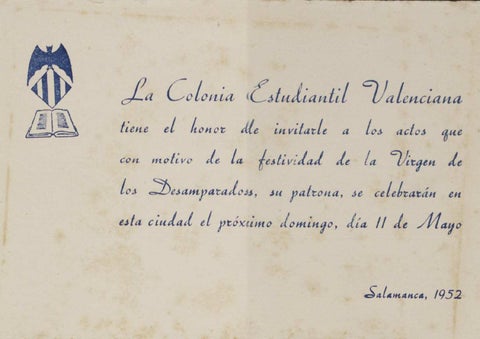 La Colonia Estudiantil Valenciana
tiene el honor de invitarle a los actos que
con motivo de la festividad de la Virgen de
los Desamparados, su patrona, se celebrarán en
esta ciudad el próximo domingo, día 11 de Mayo
Salamanca, 1952